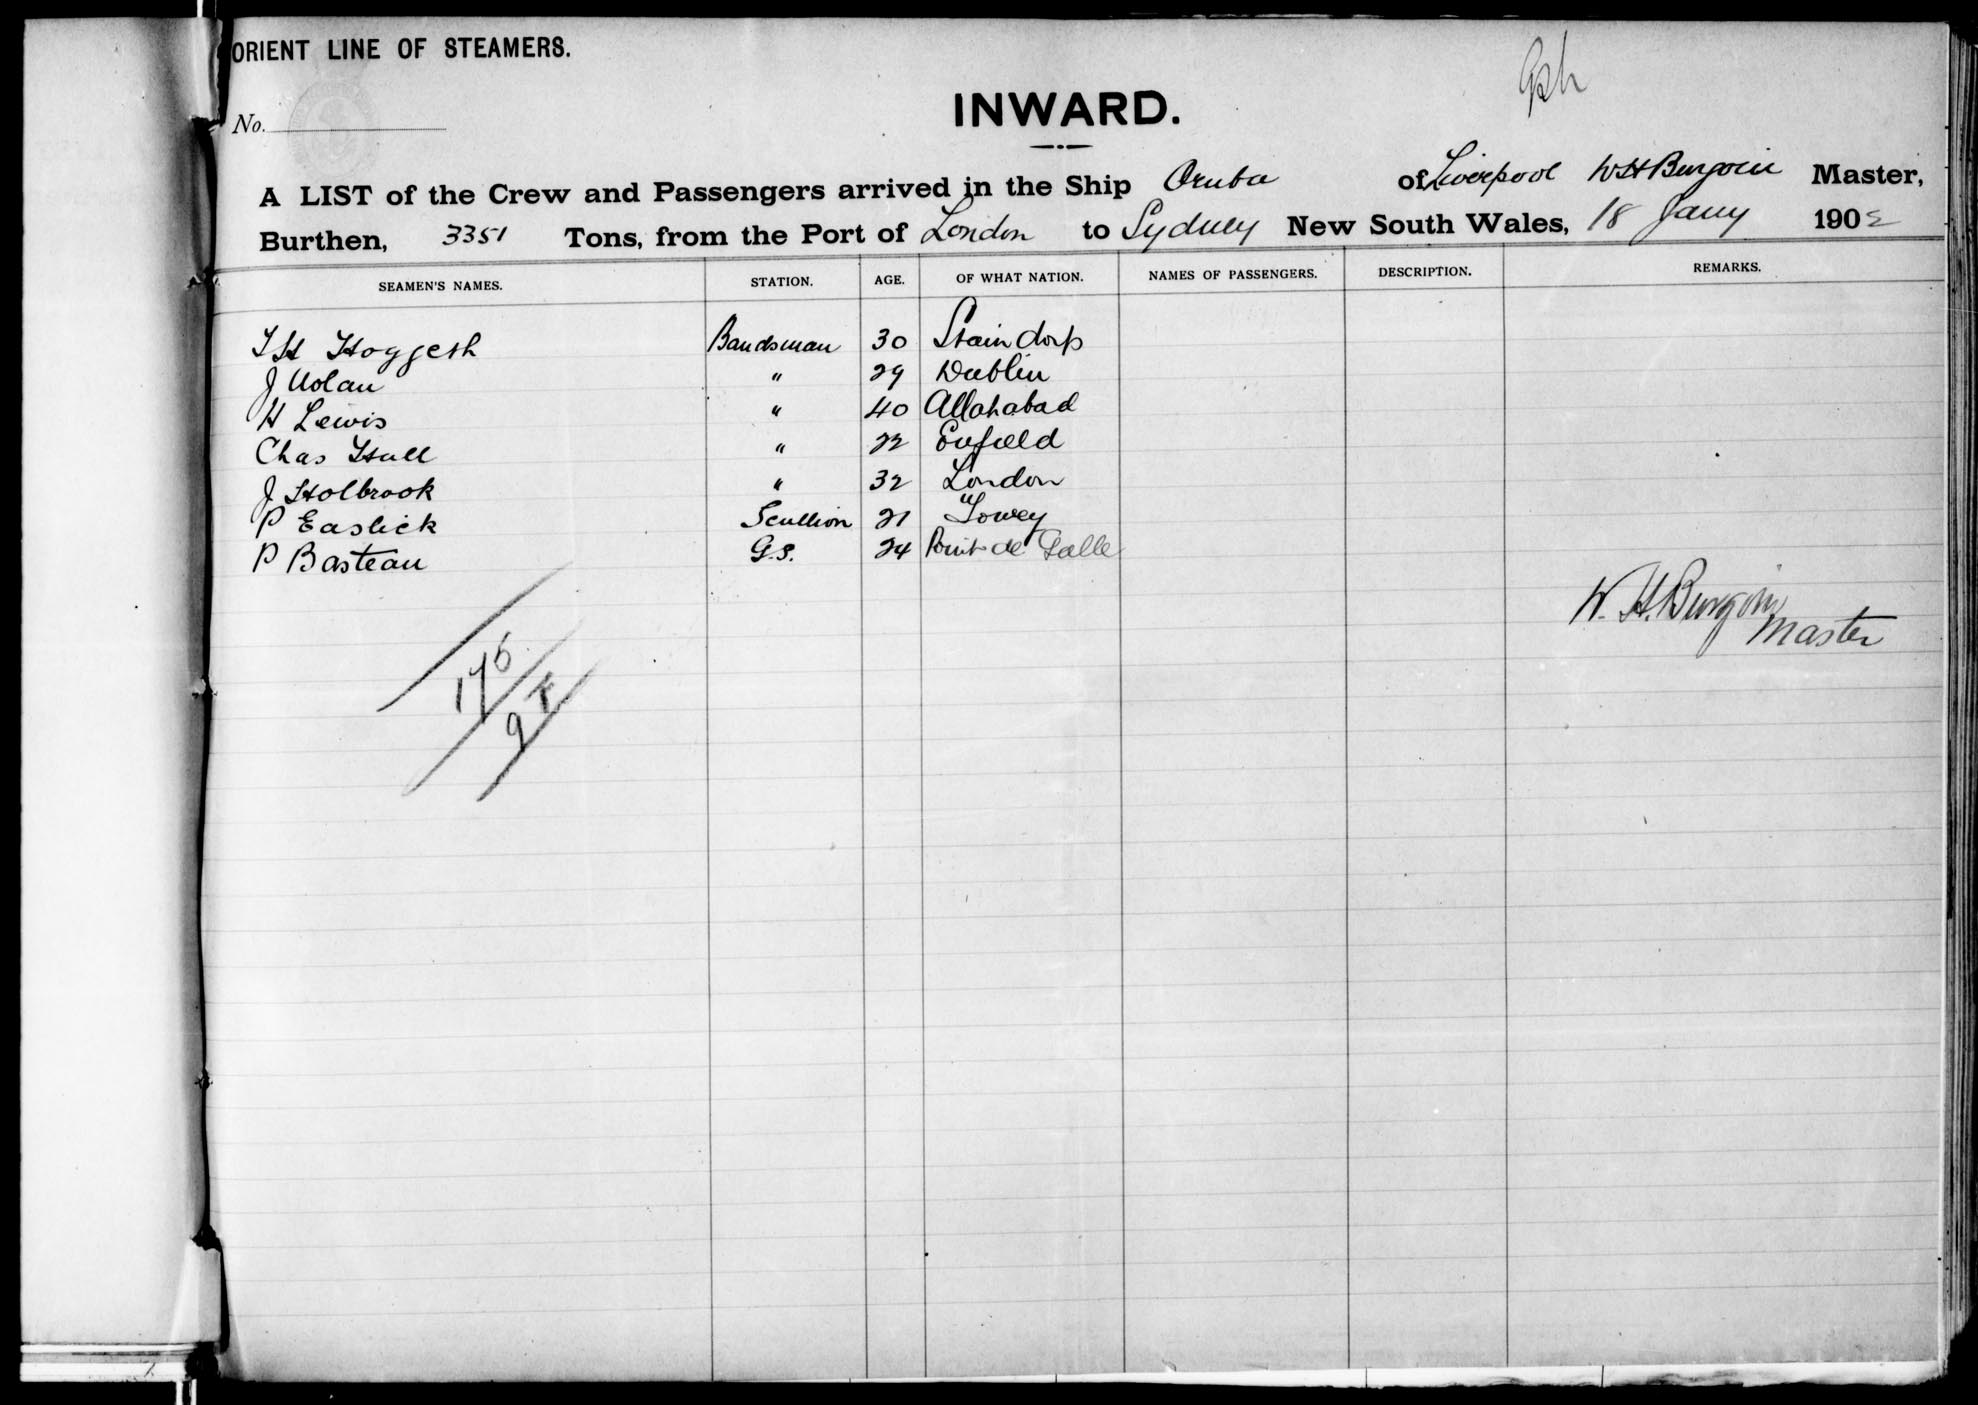 ORIENT LINE OF STEAMERS.
No.
INWARD.
A LIST of the Crew and Passengers arrived in the Ship Oruba of Liverpool W H Burgoin Master,
Burthen, 3351 Tons, from the Port of London to Sydney New South Wales, 18 Jany 1902
SEAMEN'S NAMES. STATION. AGE. OF WHAT NATION. NAMES OF PASSENGERS. DESCRIPTION. REMARKS.
Hoggeth Bandsman 30 Staindorp
J Nolan " 29 Dublin
H Lewis " 40 Allahabad
Chas Hull " 22 Enfield
J Holbrook " 32 London
P Easlick Scullion 21 Fowey
P Basteau G.S. 24 Point de Galle
W. H. Burgoin
Master
175
9